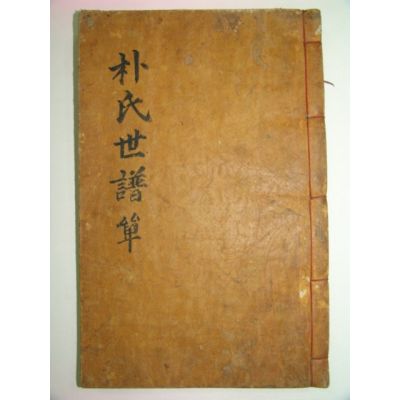 朴氏世譜単